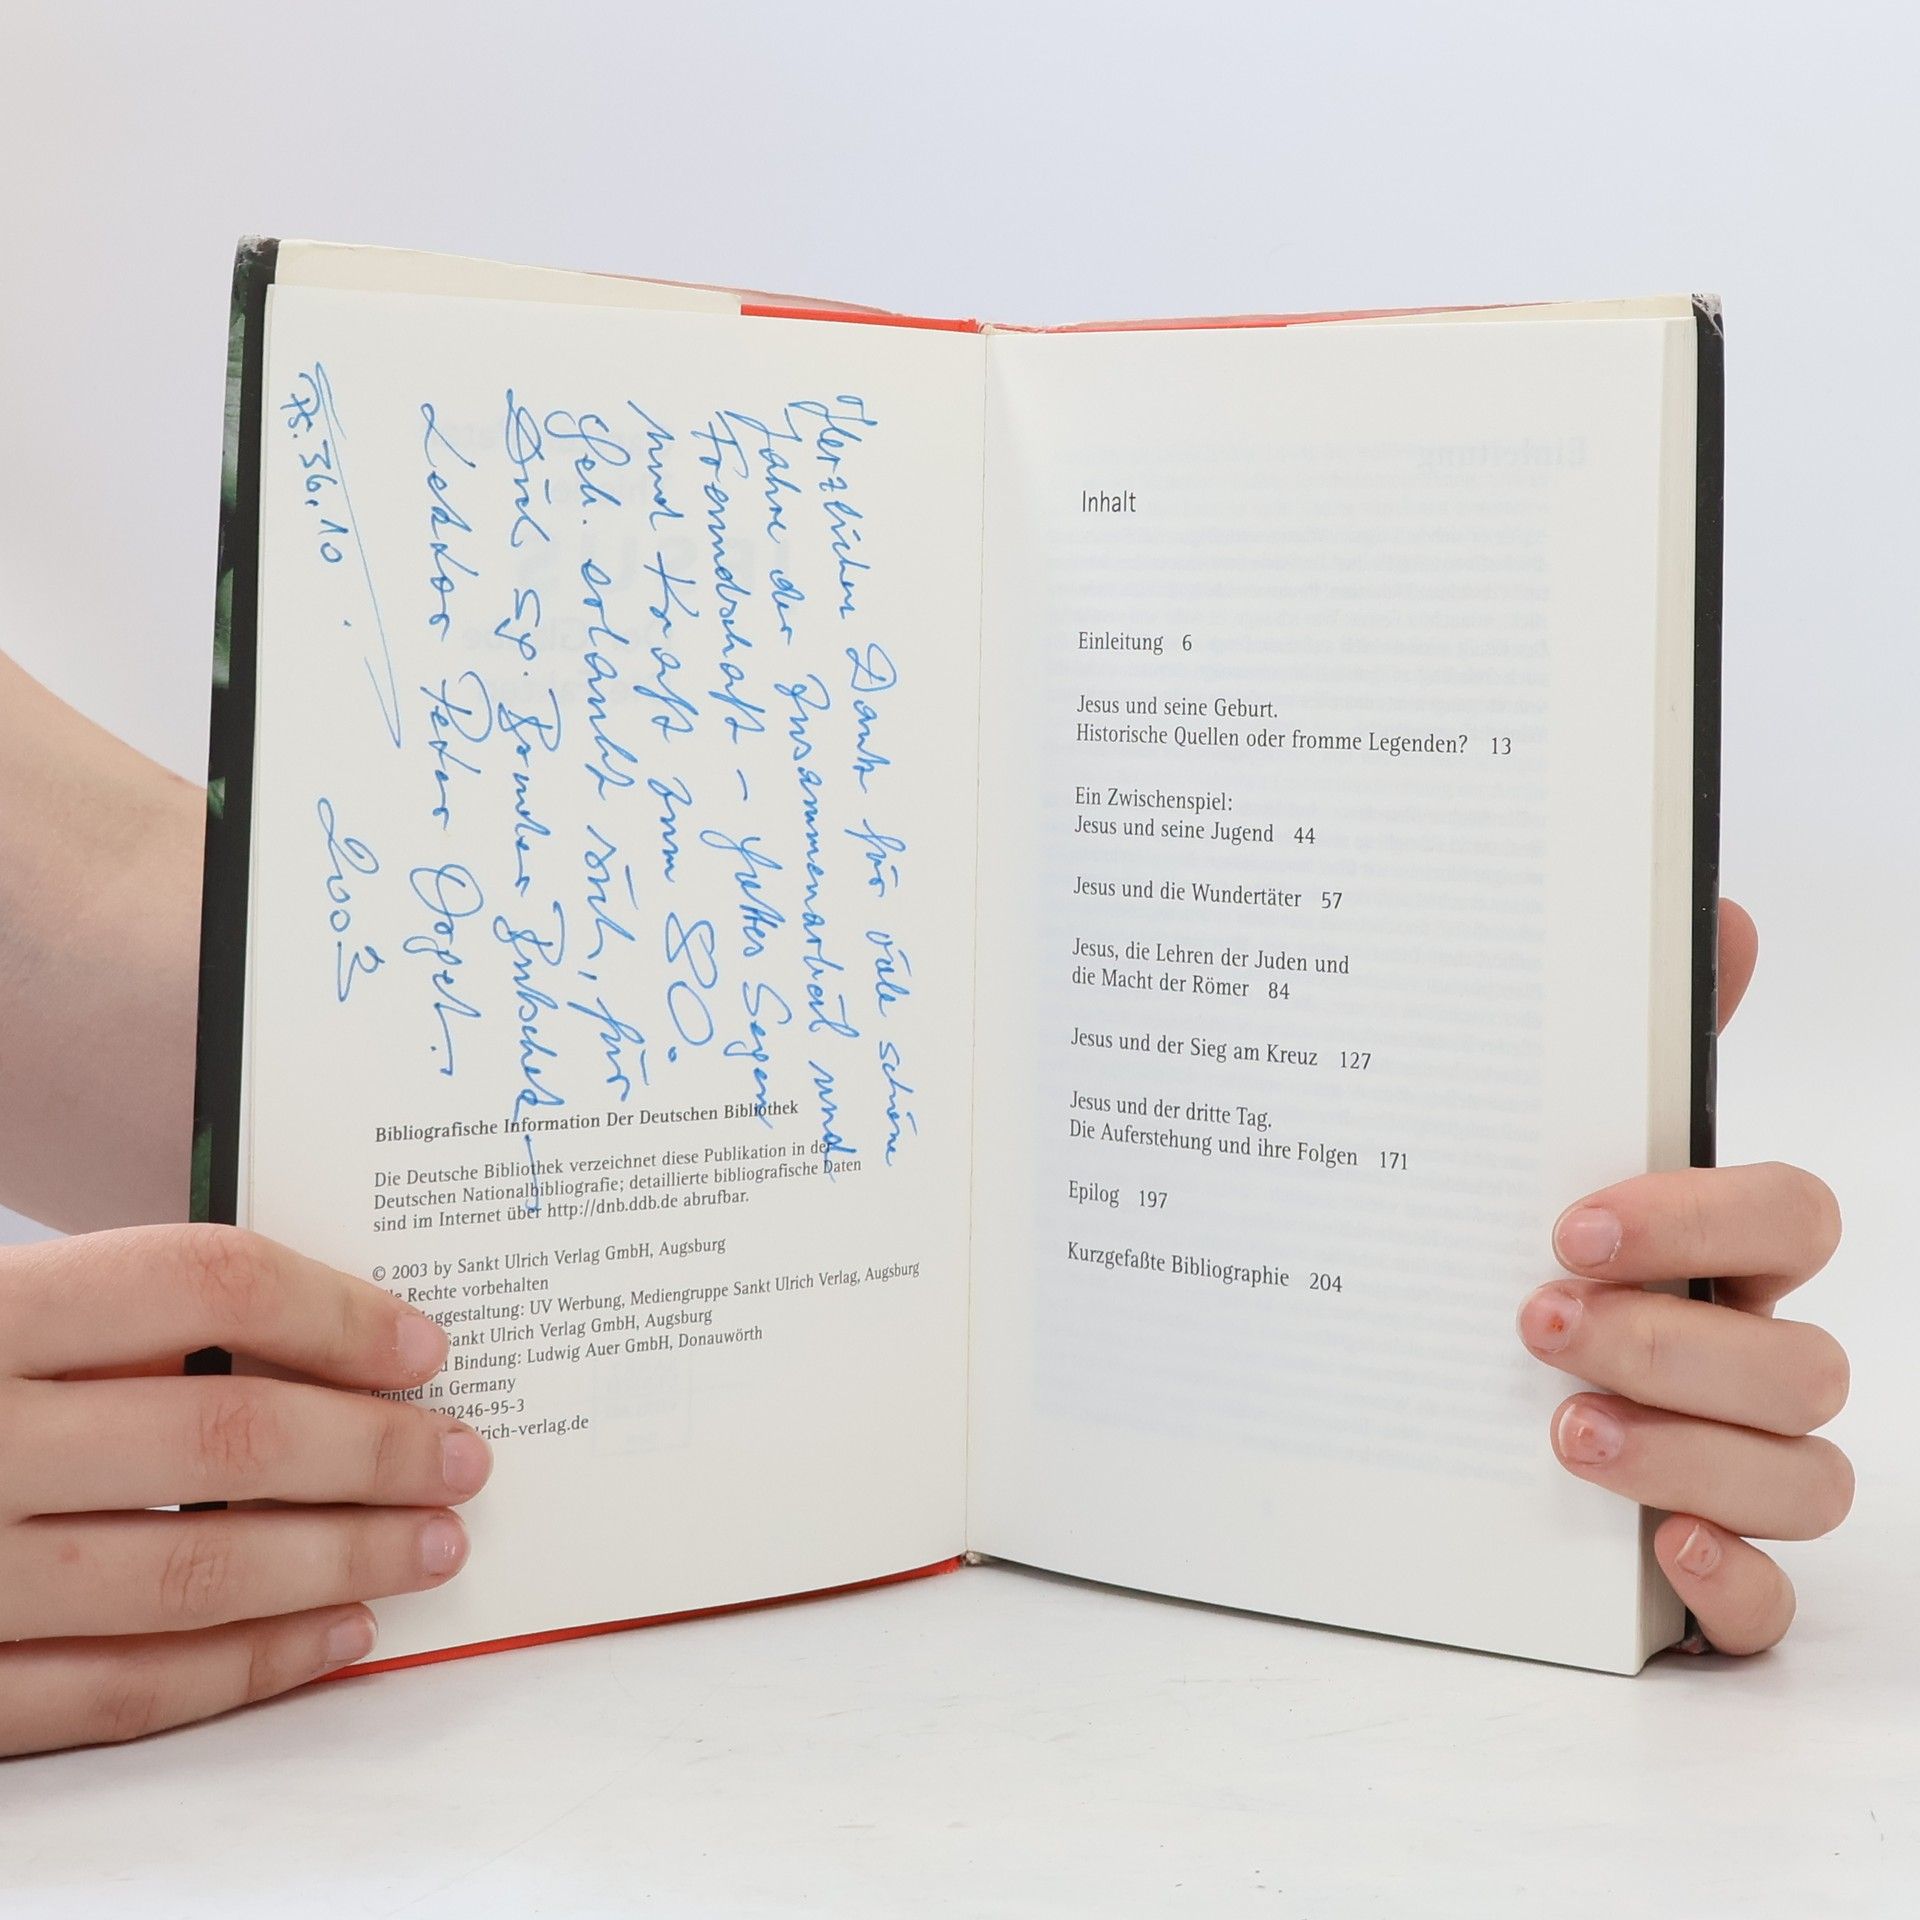 Herzlichen Dank für viele schöne
Jahre der Zusammenarbeit und
Freundschaft – Gottes Segen
und Kraft zum 80.
Geb. erlaubt sich, für
Dich
Lektor Peter
Ps. 36,10
2003
Bibliografische Information Der Deutschen Bibliothek
Die Deutsche Bibliothek verzeichnet diese Publikation in der
Deutschen Nationalbibliografie; detaillierte bibliografische Daten
sind im Internet über http://dnb.ddb.de abrufbar.
© 2003 by Sankt Ulrich Verlag GmbH, Augsburg
Rechte vorbehalten
UV Werbung, Mediengruppe Sankt Ulrich Verlag, Augsburg
Sankt Ulrich Verlag GmbH, Augsburg
Bindung: Ludwig Auer GmbH, Donauwörth
Printed in Germany
29246-95-3
lrich-verlag.de
Inhalt
Einleitung 6
Jesus und seine Geburt.
Historische Quellen oder fromme Legenden? 13
Ein Zwischenspiel:
Jesus und seine Jugend 44
Jesus und die Wundertäter 57
Jesus, die Lehren der Juden und
die Macht der Römer 84
Jesus und der Sieg am Kreuz 127
Jesus und der dritte Tag.
Die Auferstehung und ihre Folgen 171
Epilog 197
Kurzgefaßte Bibliographie 204